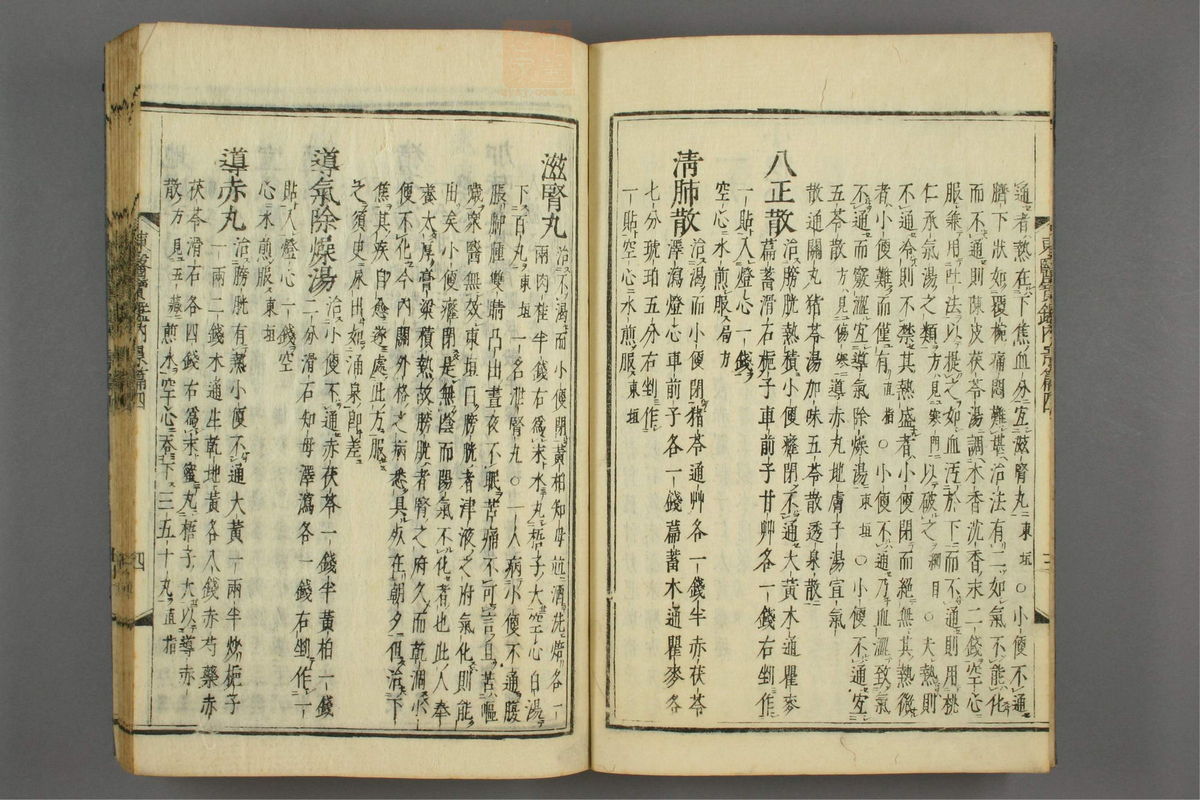 通者熱在下焦血分宜滋腎丸東垣○小便不通
臍下狀如覆椀痛悶難堪治法有二如氣不能化
而不通則陳皮茯苓湯調木香沈香末二錢空心
服乘用吐法以提之如血汚於下而不通則用桃
仁承氣湯之類方見寒門以破之綱目○夫熱則
不通冷則不禁其熱盛者小便閉而絕無其熱微
者小便難而僅有直指○小便不通乃血澁致氣
不通而竅澁宜導氣除燥湯東垣○小便不通宜
五苓散方見傷寒導赤丸地膚子湯宜氣
散通關丸猪苓湯加味五苓散透泉散
八正散治膀胱熱積小便癃閉不通大黃木通瞿麥
萹蓄滑石梔子車前子甘艸各一錢右剉作
一貼入燈心一錢
空心水煎服局方
淸肺散治渴而小便閉猪苓通艸各一錢半赤茯苓
澤瀉燈心車前子各一錢萹蓄木通瞿麥各
七分琥珀五分右剉作
一貼空心水煎服東垣
滋腎丸治不渴而小便閉黃柏知母並酒洗焙各一
兩肉桂半錢右爲末水丸梧子大空心白湯
下百丸東垣一名泄腎丸○一人病小便不通腹
脹脚腫雙睛凸出晝夜不眠苦痛不可言且苦嘔
噦衆醫無效東垣曰膀胱者津液之府氣化則能
出矣小便癃閉是無陰而陽氣不化者也此人奉
養太厚膏粱積熱故膀胱者腎之府久而乾涸小
便不化今內關外格之病悉具死在朝夕但治下
焦其疾自愈遂處此方服
之須臾尿出如涌泉卽差
導氣除燥湯治小便不通赤茯苓一錢半黃柏一錢
二分滑石知母澤瀉各一錢右剉作一
貼入燈心一錢空
心水煎服東垣
導赤丸治膀胱有熱小便不通大黃一兩半炒梔子
一兩二錢木通生乾地黃各八錢赤芍藥赤
茯苓滑石各四錢右爲末蜜丸梧子大以導赤
散方見五藏煎水空心呑下三五十丸直指
東醫寶鑑內景篇四
三
東醫寶鑑內景篇四
四